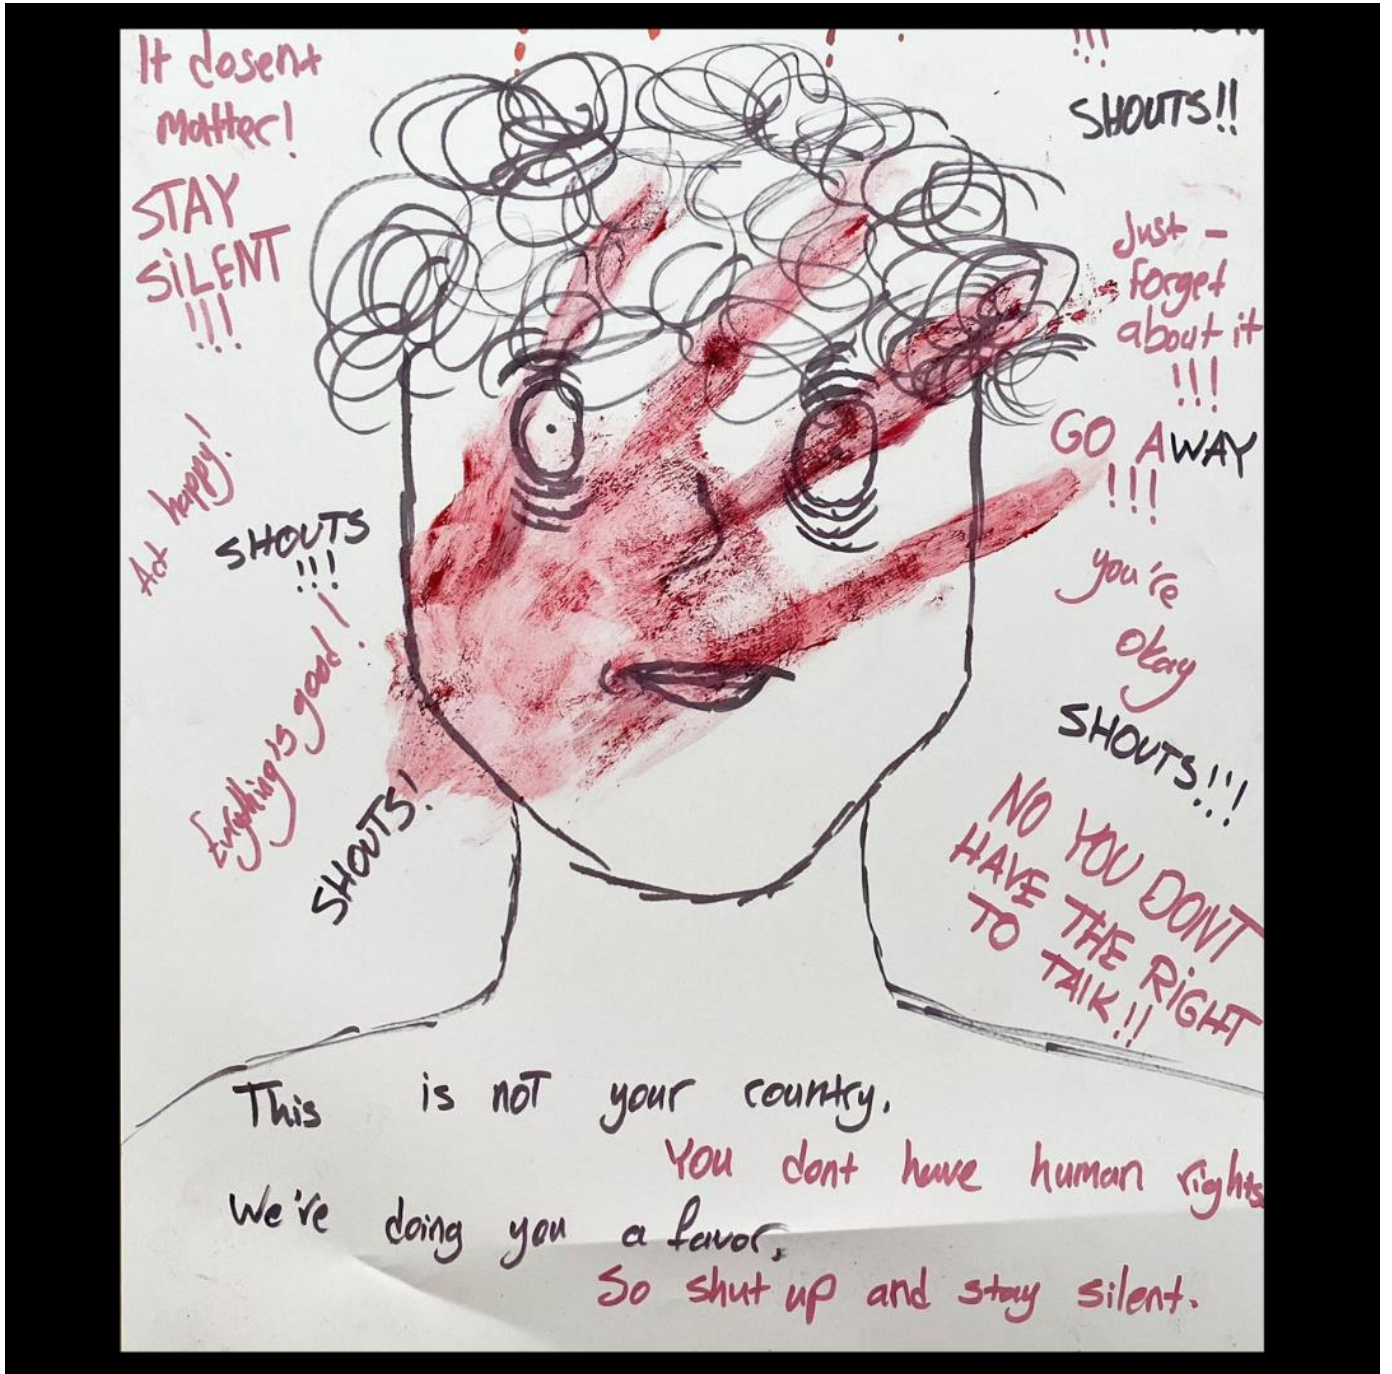 It dosent
matter!
STAY
SiLENT
!!!
Act happy!
SHOUTS
!!!
Everything is good!
SHOUTS!
!!!
SHOUTS!!
Just -
forget
about it
!!!
GO AWAY
!!!
you're
okay
SHOUTS!!!
NO YOU DONT
HAVE THE RiGHT
TO TAlK!!
This is not your country.
You dont have human rights.
We're doing you a favor,
So shut up and stay silent.